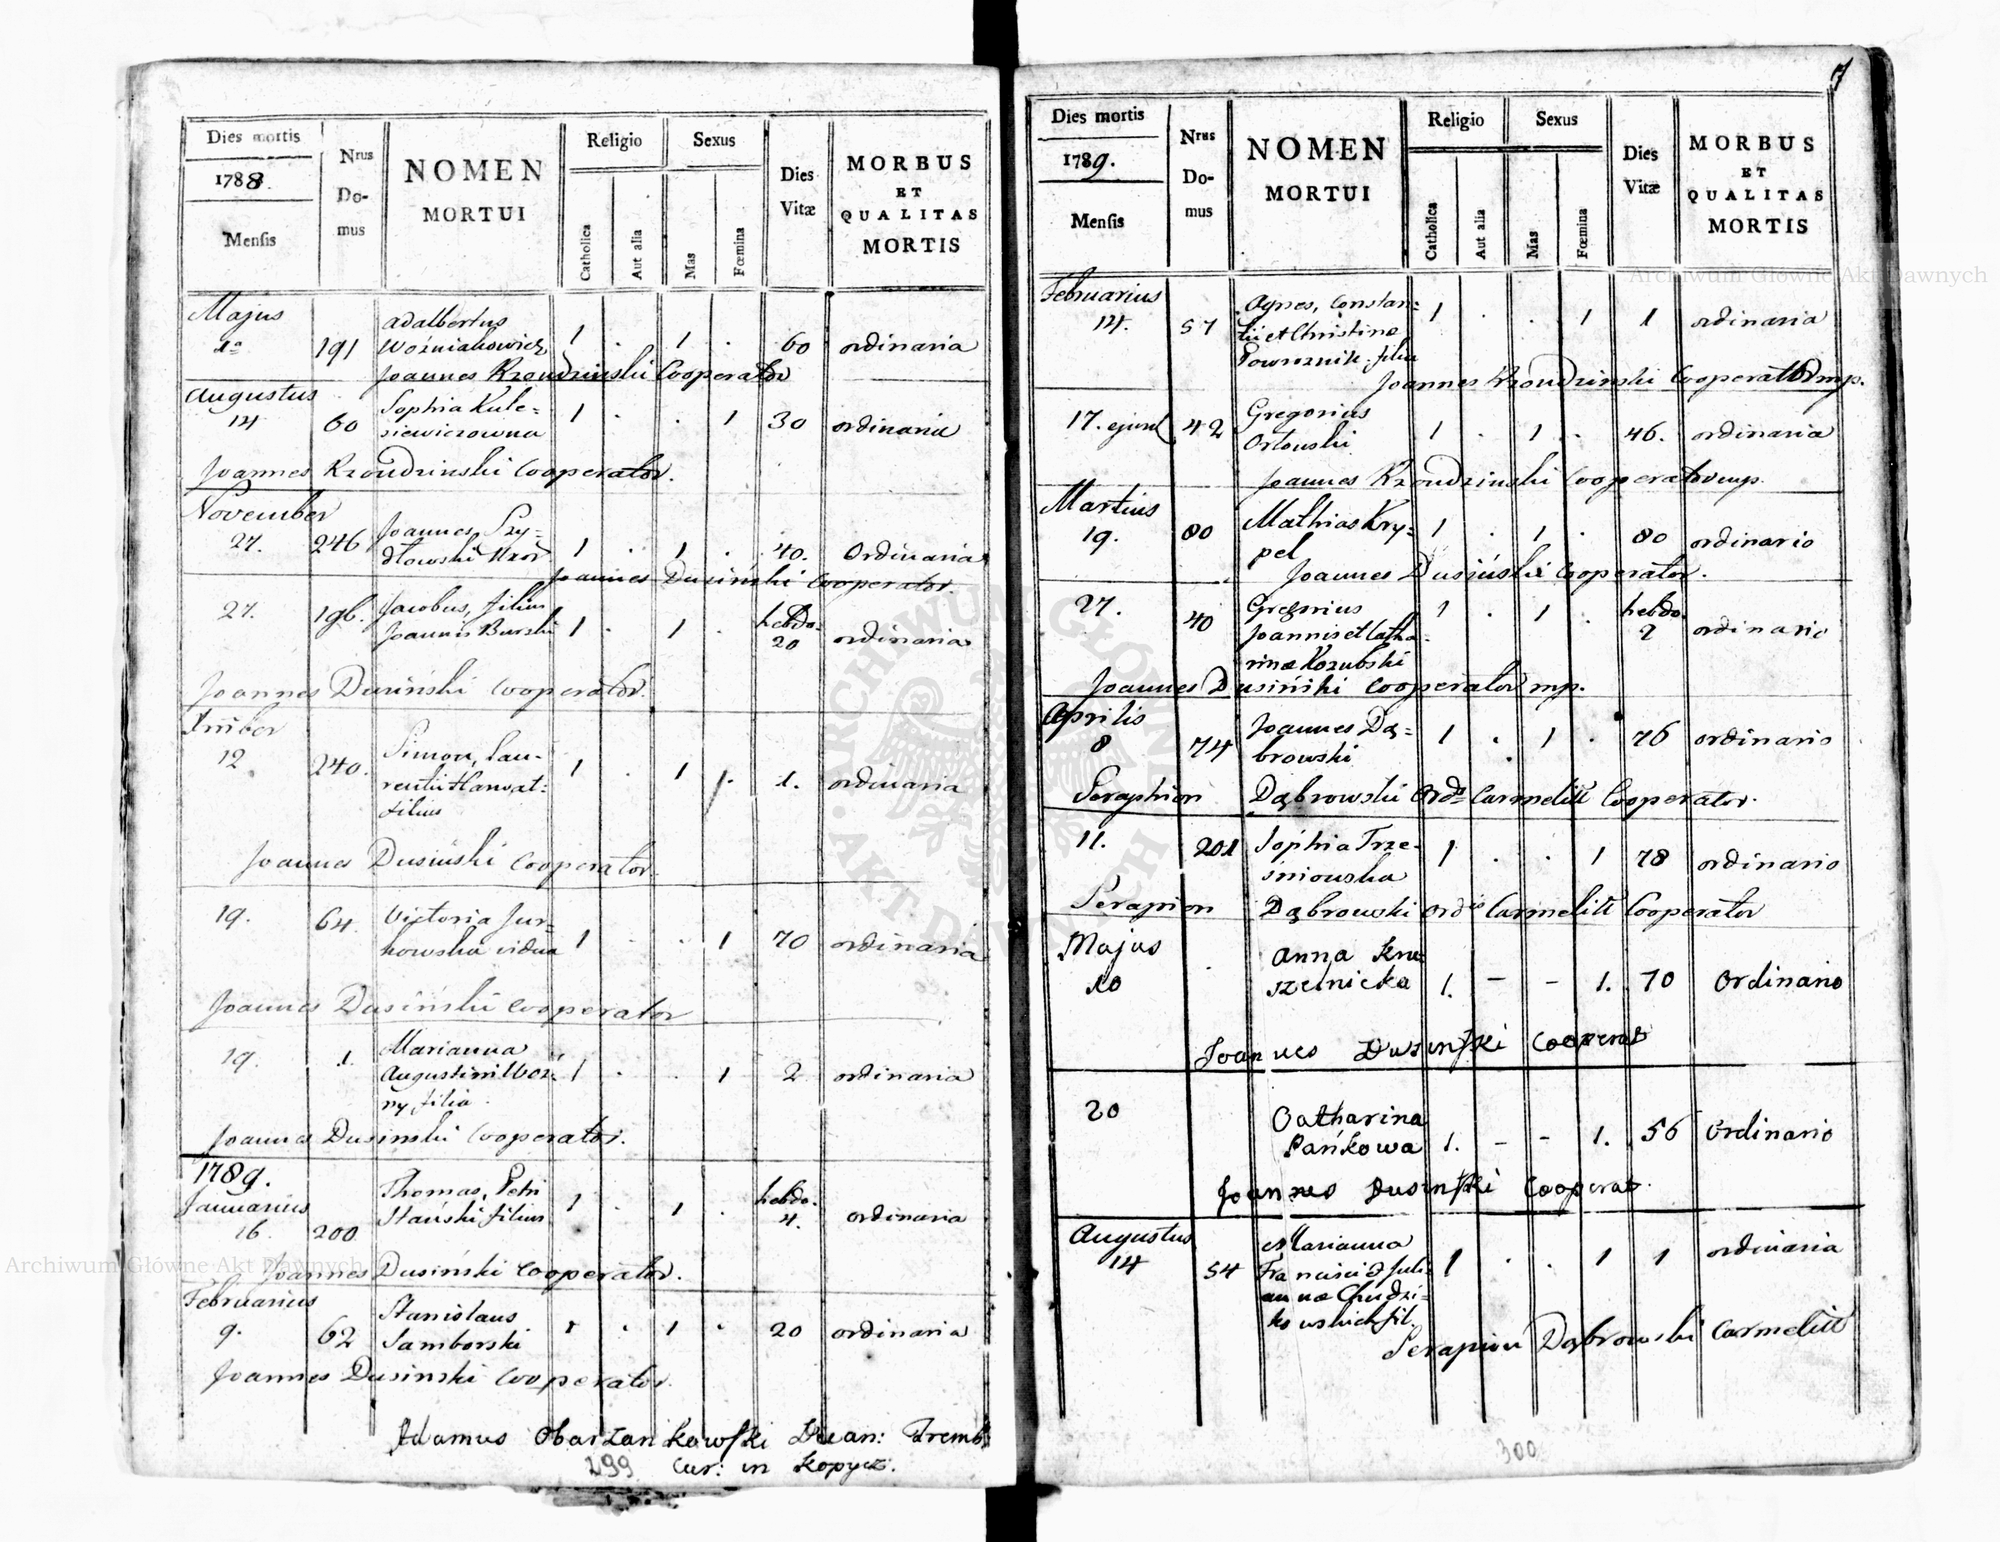 Dies mortis
1788.
Mensis
Nrus
Do-
mus
NOMEN
MORTUI
Religio
Catholica
Aut alia
Sexus
Mas
Fœmina
Dies
Vitæ
MORBUS
ET
QUALITAS
MORTIS
Majus
1a 191 Adalbertus
Woźniakowicz 1 . 1 . 60 ordinaria
Joannes Rzoudzinski Cooperator
Augustus
14 60 Sophia Kule=
siewiczowna 1 . . 1 30 ordinaria
Joannes Rzoudzinski Cooperator.
November
27. 246 Joannes Szy=
dłowski 1 . 1 . 40. Ordinaria
Joannes Dusiński Cooperator.
27. 196. Jacobus, filius
Joannis Burski 1 . 1 . hebdo.
20 ordinaria
Joannes Dusiński Cooperator.
Xmber
12. 240. Simon, Lau=
rentii Hawat=
filius 1 . 1 . 1. ordinaria
Joannes Dusiński Cooperator.
19. 64 Victoria Jur=
kowska vidua 1 . . 1 70 ordinaria
Joannes Dusiński Cooperator
19. 1. Marianna
Augustini Woź=
ny, filia. 1 . . 1 2 ordinaria
Joannes Dusinski Cooperator.
1789.
Januarius
16. 200 Thomas, Petri
Stański filius 1 . 1 . hebdo.
4. ordinaria
Joannes Dusiński Cooperator.
Februarius
9. 62 Stanislaus
Samborski 1 . 1 . 20 ordinaria
Joannes Dusinski Cooperator.
Adamus Obarzankowski Decan: Tremb:
299 Cur: in Kopycz.
7
Dies mortis
1789.
Mensis
Nrus
Do-
mus
NOMEN
MORTUI
Religio
Catholica
Aut alia
Sexus
Mas
Fœmina
Dies
Vitæ
MORBUS
ET
QUALITAS
MORTIS
Februarius
14. 57 Agnes, Constan=
tii et Christinæ
Powroznik. filia 1 . . 1 1 ordinaria
Joannes Rzoudzinski Cooperator mp.
17. ejusd 42 Gregorius
Orłowski 1 . 1 . 46. ordinaria
Joannes Rzoudzinski Cooperator mp.
Martius
19. 80 Mathias Kry=
pel 1 . 1 . 80 ordinario
Joannes Dusiński Cooperator.
27. 40 Gregorius
Joannis et Catha=
rinæ Kozubski 1 . 1 . hebdo.
2 ordinario
Joannes Dusiński Cooperator mp.
Aprilis
8 74 Joannes Dą=
browski 1 . 1 . 76 ordinario
Seraphion Dąbrowski Ords Carmelitt Cooperator.
11. 201 Sophia Trze-
śniowska 1 . . 1 78 ordinario
Serapion Dąbrowski Ordis Carmelitt Cooperator
Majus
10 . Anna Kru
szelnicka 1. – – 1. 70 Ordinario
Joannes Dusinski Cooperat
20 Catharina
Pańkowa 1. – – 1. 56 Ordinario
Joannes Dusinski Cooperat.
Augustus
14 54 Marianna
Francisci & Juli=
annæ Chudzi=
kowskich fil. 1 . . 1 1 ordinaria
Serapion Dąbrowski Carmelitt
300
Archiwum Główne Akt Dawnych
Archiwum Główne Akt Dawnych
ARCHIWUM GŁÓWNE AKT DAWNYCH